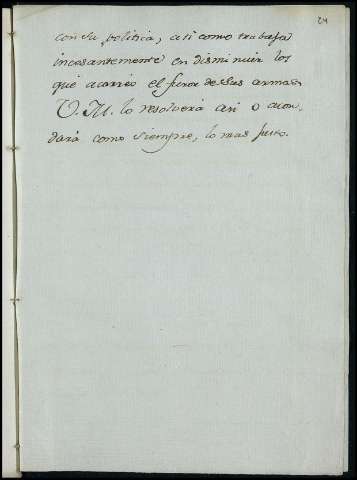 24
con su politica, asi como trabaja
incesantemente en disminuir los
que acarreo el furor de las armas.
V. M. lo resolverá asi o acor-
dará como siempre, lo mas justo.